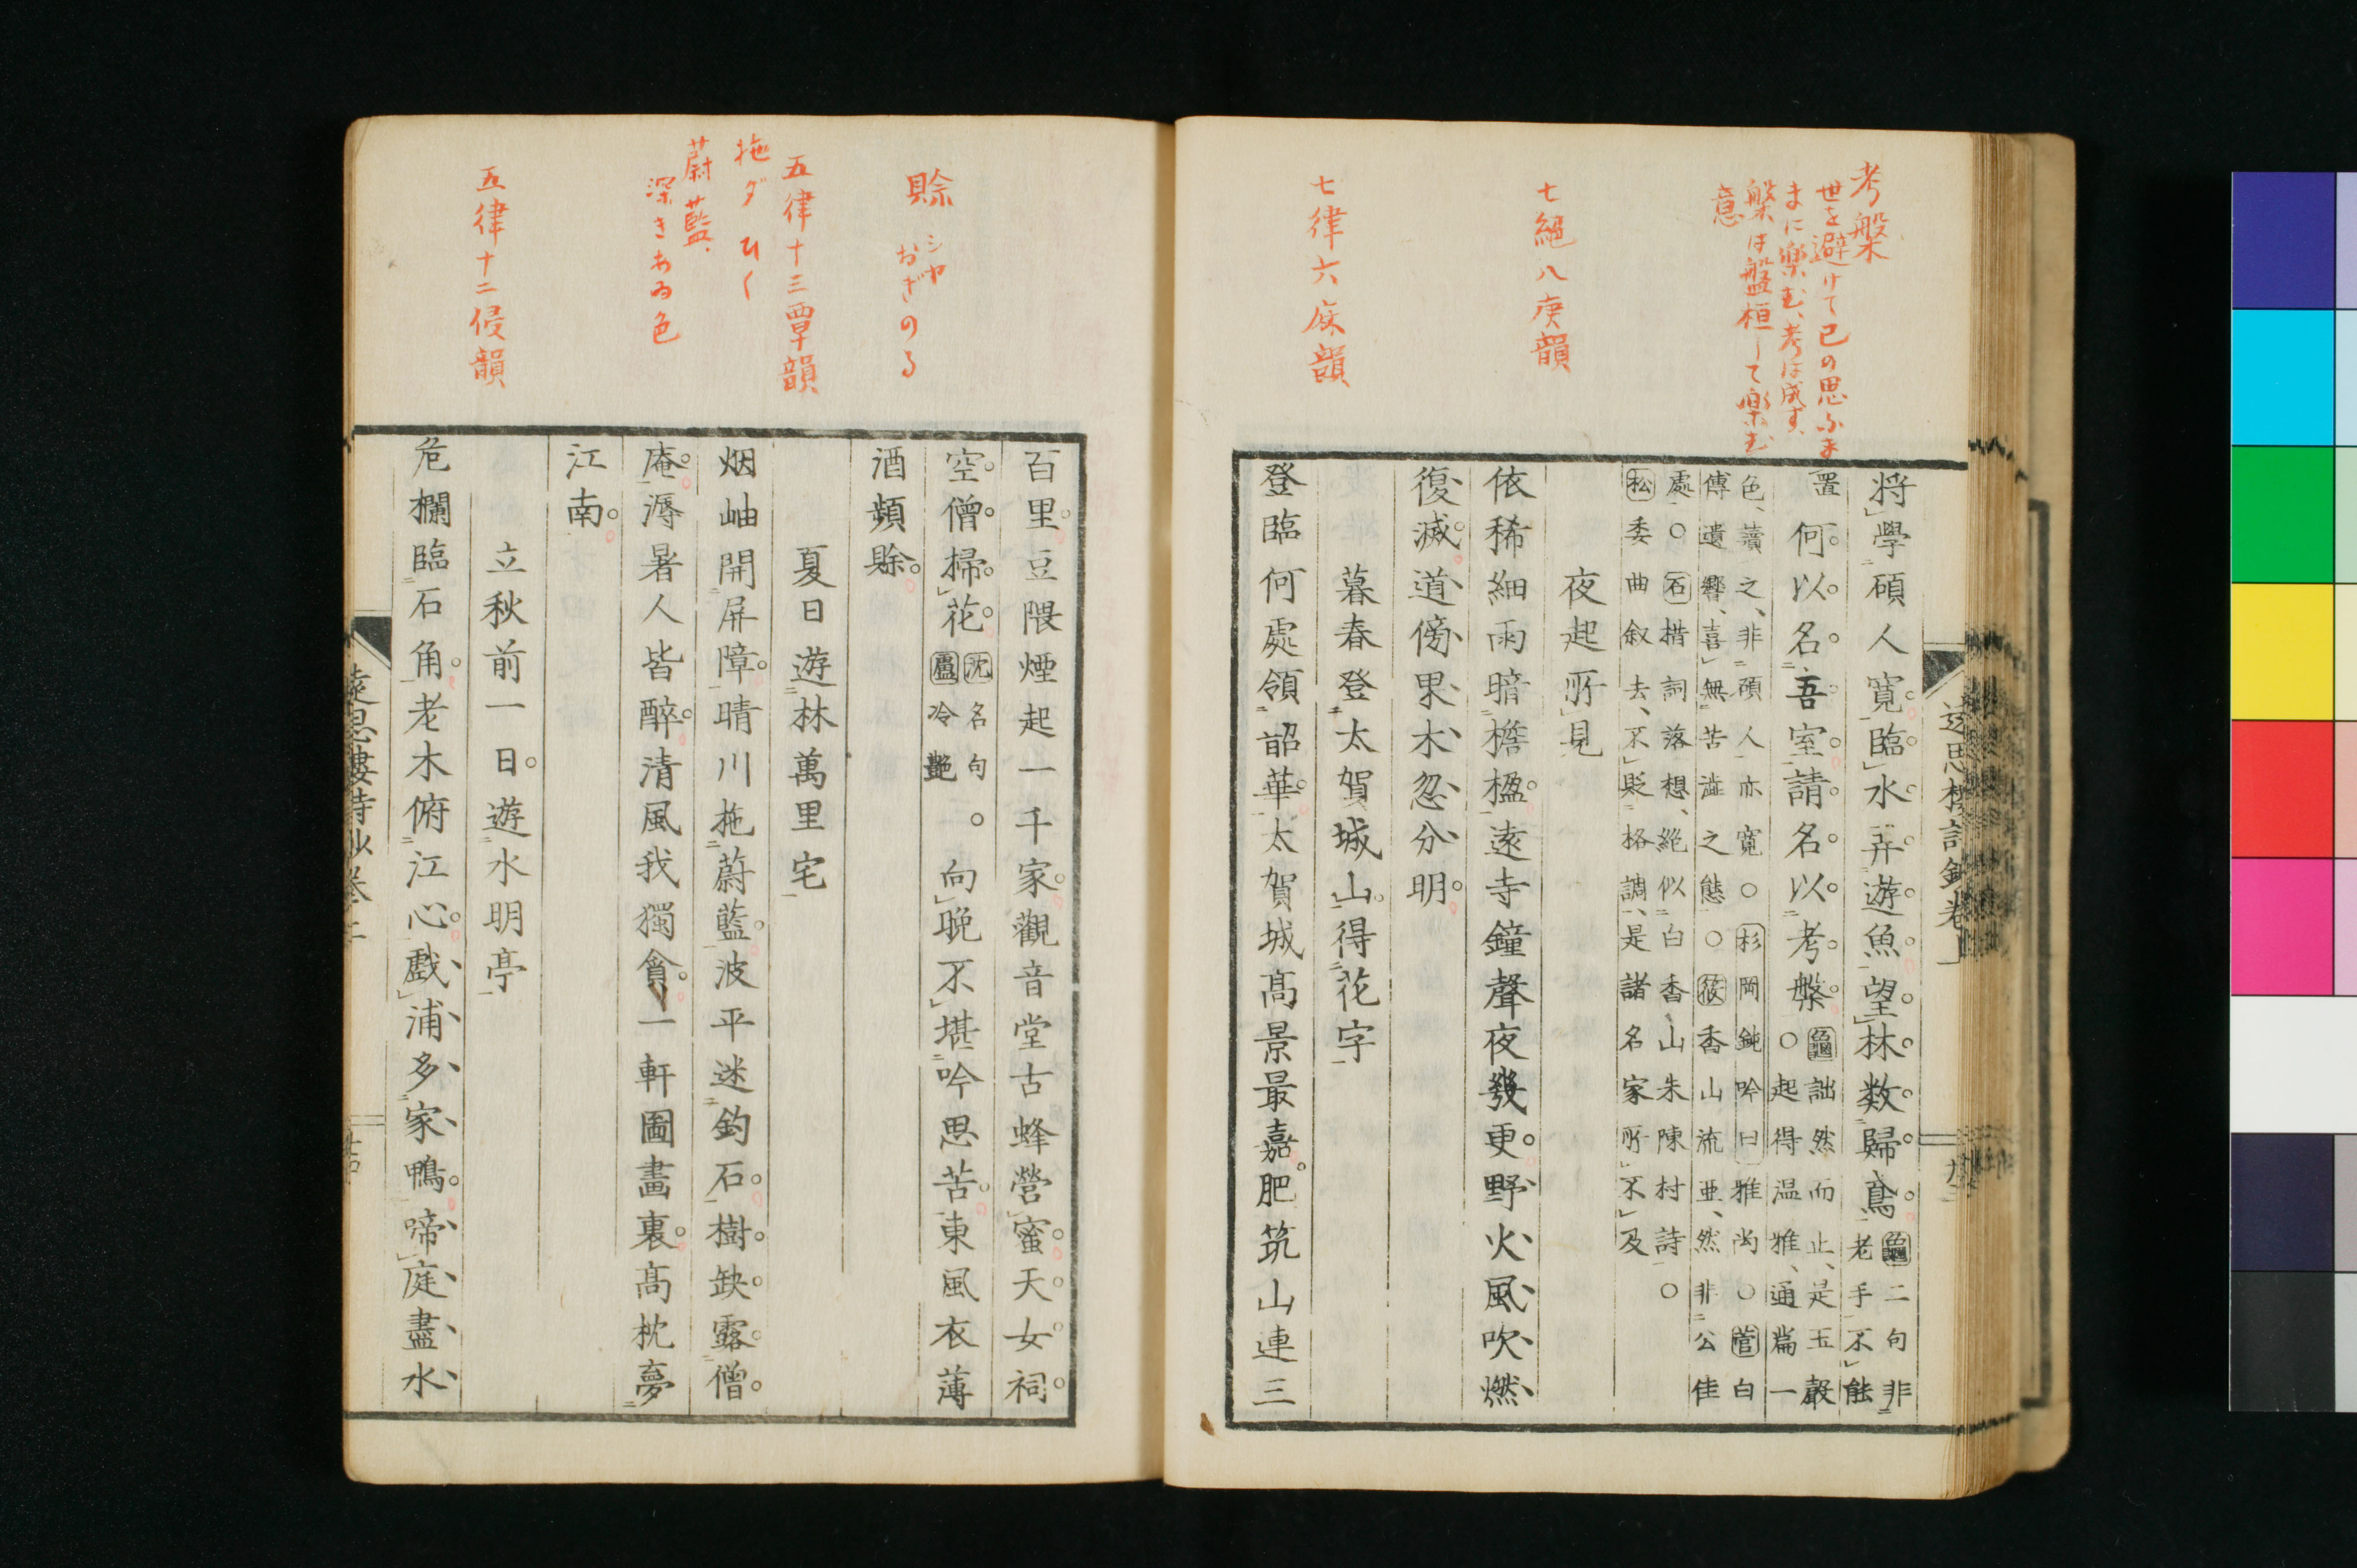 考槃
世を避けて己の思ふま
まに楽む、考は成す、
槃は盤桓して楽む
意
七絶八庚韻
七律六麻韻
将學碩人寛臨水弄遊魚望林数歸鳶
龜二句非
老手不能
置
何以名吾室請名以考槃
龜詘然而止、是玉聲
○起得温雅、通篇一
色、蕢之、非碩人亦寛○杉岡鈍吟曰雅尚○菅白
傅遺響、喜無苦澁之態○筱香山流亜、然非公佳
處○石措詞落想、絶似白香山朱陳村詩○
松委曲叙去、不貶格調、是諸名家所不及
夜起所見
依稀細雨暗檐楹遠寺鐘聲夜幾更野火風吹燃
復滅道傍果木忽分明
暮春登太賀城山得花字
登臨何處領韶華太賀城高景最嘉肥筑山連三
遠思樓詩鈔卷上
賖 シヤ
おぎのる
五律十三覃韻
拖ダ ひく
蔚藍
深きあゐ色
五律十二侵韻
百里豆隈煙起一千家觀音堂古蜂營蜜天女祠
空僧掃花
沈名句
廬冷艶
○向晩不堪吟思苦東風衣薄
酒頻賖
夏日遊林萬里宅
烟岫開屏障晴川拖蔚藍波平迷釣石樹缺露僧
庵溽暑人皆醉清風我獨貪一軒圖畫裏高枕夢
江南
立秋前一日遊水明亭
危欄臨石角老木俯江心戲浦多家鴨啼庭盡水
遠思樓詩鈔卷上